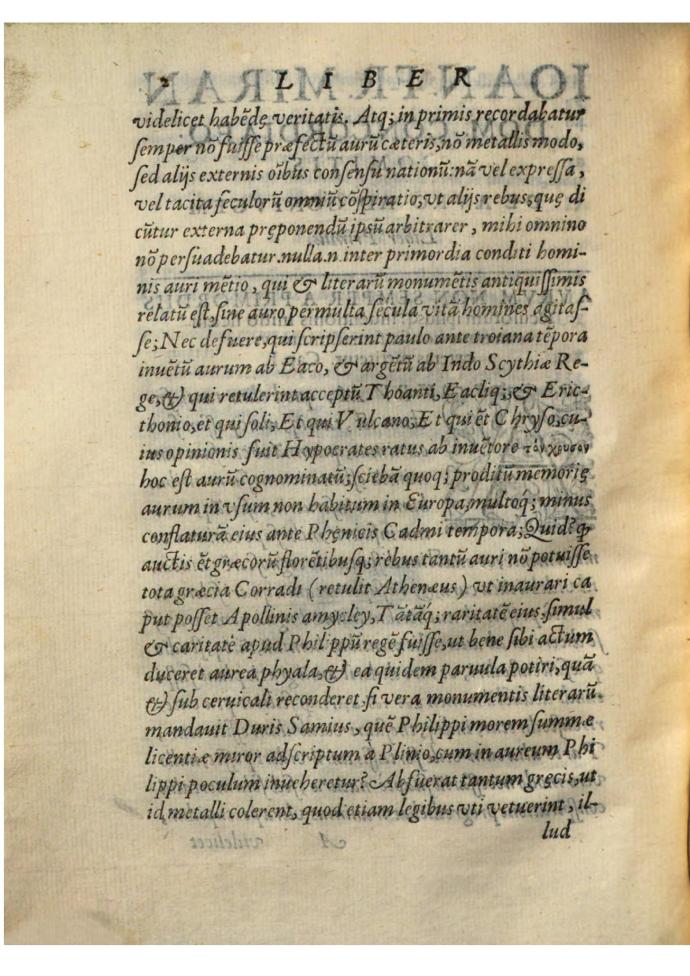 2 LIBER
videlicet habẽdę veritatis. Atq; in primis recordabatur
semper nõ fuisse præfectũ aurũ cæteris, nõ metallis modo,
sed alijs externis oĩbus consensu nationũ: nã vel expressa,
vel tacita seculorũ omniũ cõspiratio, vt alijs rebus, quę di
cũtur externa prępõnendũ ipsũ arbitrarer, mihi omnino
nõ persuadebatur. nulla .n. inter primordia conditi homi-
nis auri mẽtio, qui & literarũ monumẽtis antiquissimis
relatũ est, sine auro permulta secula vitã homines agitas-
se; Nec defuere, qui scripserint paulo ante troiana tẽpora
inuẽtũ aurum ab Eaco, & argẽtũ ab Indo Scythiæ Re-
ge, & qui retulerint acceptũ Thoanti, Eacliq;, & Eric-
thonio, et qui soli, Et qui Vulcano, Et qui ẽt Chryso, cu-
ius opinionis fuit Hypocrates ratus ab inuẽtore τὸν χρυσὸν
hoc est aurũ cognominatũ; sciebã quoq; proditũ memorię
aurum in vsum non habitum in Europa, multoq́; minus
conflaturã eius ante Phęnicis Cadmi tempora; Quid? ꝙ
auctis ẽt græcorũ florẽtibusq; rebus tantũ auri nõ potuisse
tota græcia Corradi (retulit Athenæus) vt inaurari ca
put posset Apollinis amyclęy, Tãtãq́; raritatẽ eius, simul
& caritatẽ apud Philippũ regẽ fuisse, ut bene sibi actum
duceret aurea phyala, & ea quidem paruula potiri, quã
& sub ceruicali reconderet, si vera monumentis literarũ
mandauit Duris Samius, quẽ Philippi morem summæ
licentiæ miror adscriptum à Plinio, cum in aureum Phi
lippi poculum inueheretur? Abfuerat tantum gręcis, ut
id metalli colerent, quod etiam legibus vti vetuerint, il-
lud